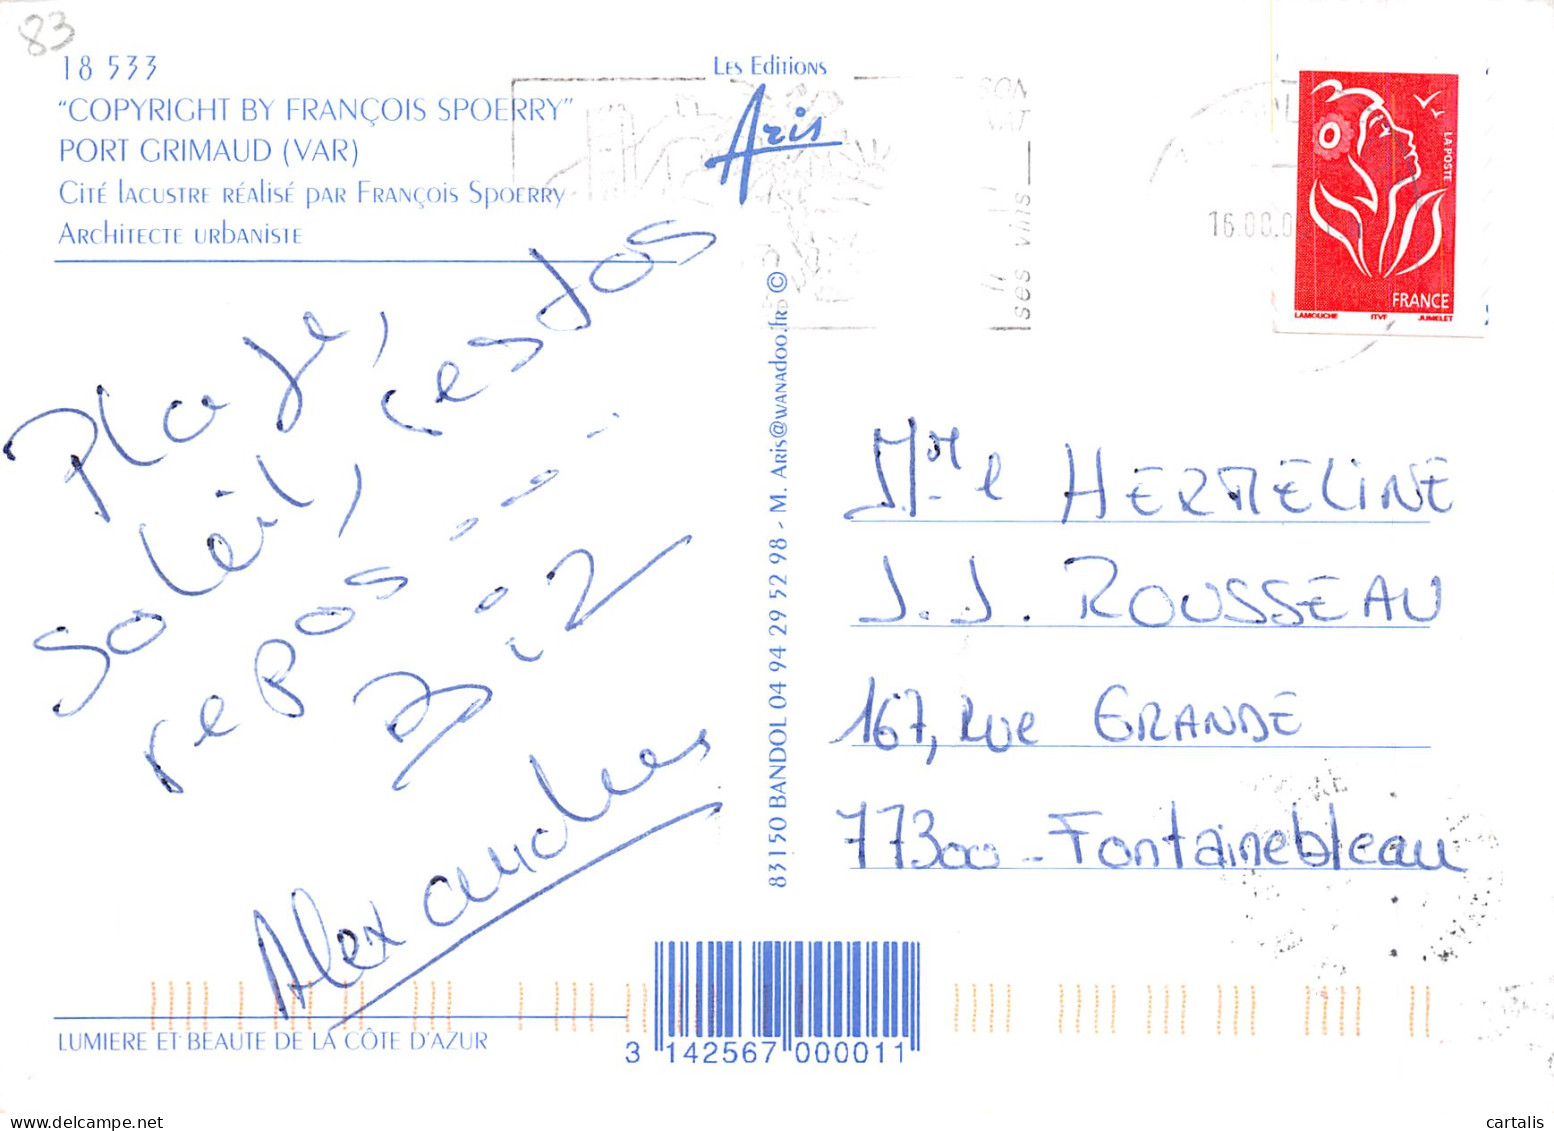 83
18 533
"COPYRIGHT BY FRANÇOIS SPOERRY"
PORT GRIMAUD (VAR)
Cité lacustre réalisé par François Spoerry
Architecte urbaniste
Les Editions
Aris
ses vins
LA POSTE
FRANCE
LAMOUCHE ITVF JUMELET
Plage,
soleil, restos
repos - - - -
Biz
Alexandres
83150 BANDOL 04 94 29 52 98 - M. Aris@wanadoo.fr ©
HERMELINE
J.J. ROUSSEAU
167, Rue GRANDE
77300 - Fontainebleau
LUMIERE ET BEAUTE DE LA CÔTE D'AZUR
3 142567 000011
cartalis